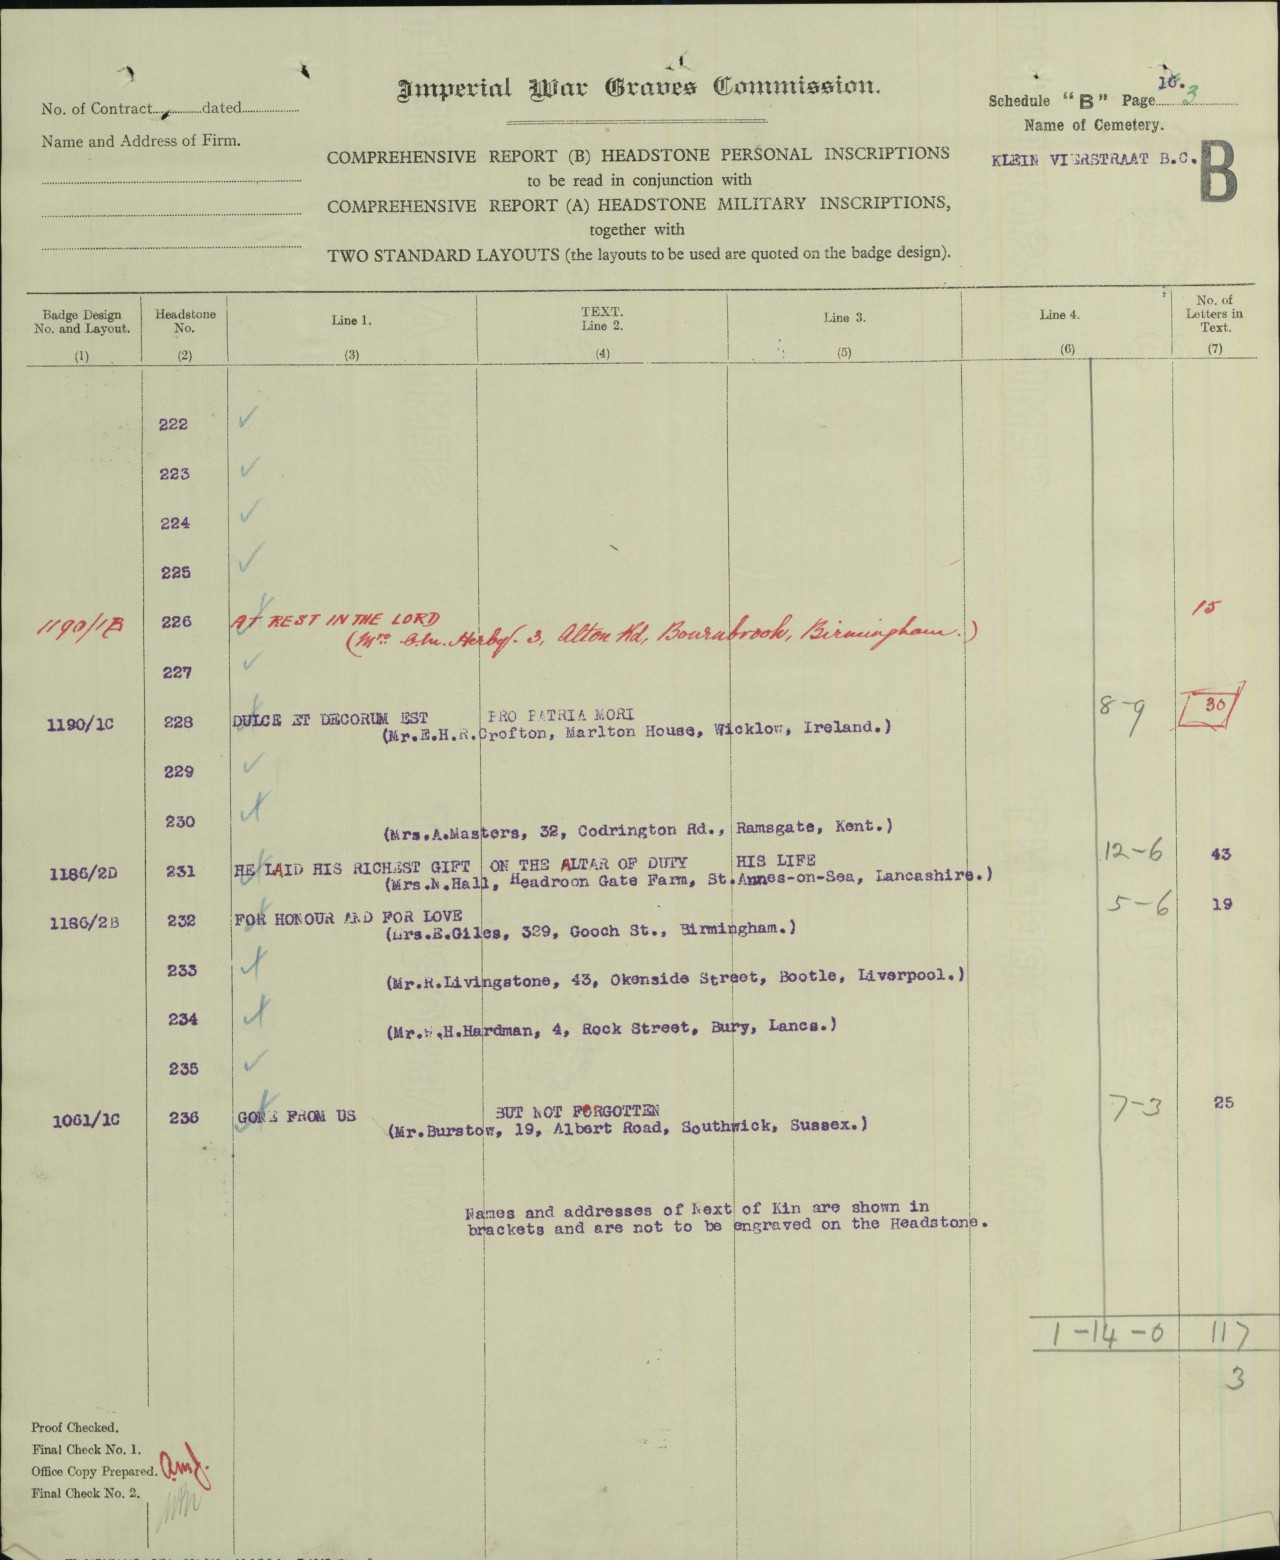 Imperial War Graves Commission.
No. of Contract dated
Name and Address of Firm.
10.
Schedule "B" Page 3
Name of Cemetery.
KLEIN VIERSTRAAT B.C.
B
COMPREHENSIVE REPORT (B) HEADSTONE PERSONAL INSCRIPTIONS
to be read in conjunction with
COMPREHENSIVE REPORT (A) HEADSTONE MILITARY INSCRIPTIONS,
together with
TWO STANDARD LAYOUTS (the layouts to be used are quoted on the badge design).
Badge Design No. and Layout. (1) Headstone No. (2) Line 1. (3) TEXT. Line 2. (4) Line 3. (5) Line 4. (6) No. of Letters in Text. (7)
222
223
224
225
1190/1B 226 AT REST IN THE LORD 15
(Mrs 3, Alton Rd, Bournbrook, Birmingham.)
227
1190/1C 228 DULCE ET DECORUM EST PRO PATRIA MORI 8-9 30
(Mr.E.H.R.Crofton, Marlton House, Wicklow, Ireland.)
229
230
(Mrs.A.Masters, 32, Codrington Rd., Ramsgate, Kent.)
1186/2D 231 HE LAID HIS RICHEST GIFT ON THE ALTAR OF DUTY HIS LIFE 12-6 43
(Mrs.N.Hall, Headroon Gate Farm, St.Annes-on-Sea, Lancashire.)
1186/2B 232 FOR HONOUR AND FOR LOVE 5-6 19
(Mrs.E.Giles, 329, Gooch St., Birmingham.)
233
(Mr.R.Livingstone, 43, Okenside Street, Bootle, Liverpool.)
234
(Mr. .H.Hardman, 4, Rock Street, Bury, Lancs.)
235
1061/1C 236 GONE FROM US BUT NOT FORGOTTEN 7-3 25
(Mr.Burstow, 19, Albert Road, Southwick, Sussex.)
Names and addresses of Next of Kin are shown in
brackets and are not to be engraved on the Headstone.
1-14-0 117
3
Proof Checked.
Final Check No. 1.
Office Copy Prepared. amj.
Final Check No. 2.